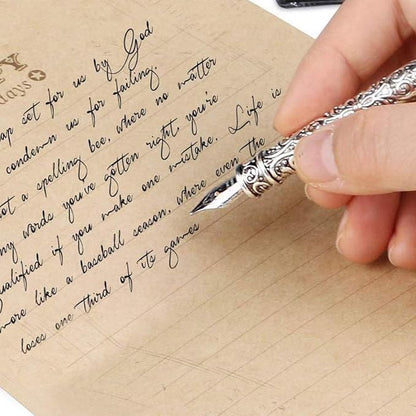 Y
days
ap set for us by God
condemn us for failing.
ot a spelling bee, where no matter
ny words you've gotten right, you're
ualified if you make one mistake. Life is
more like a baseball season, where even the
loses one third of its games